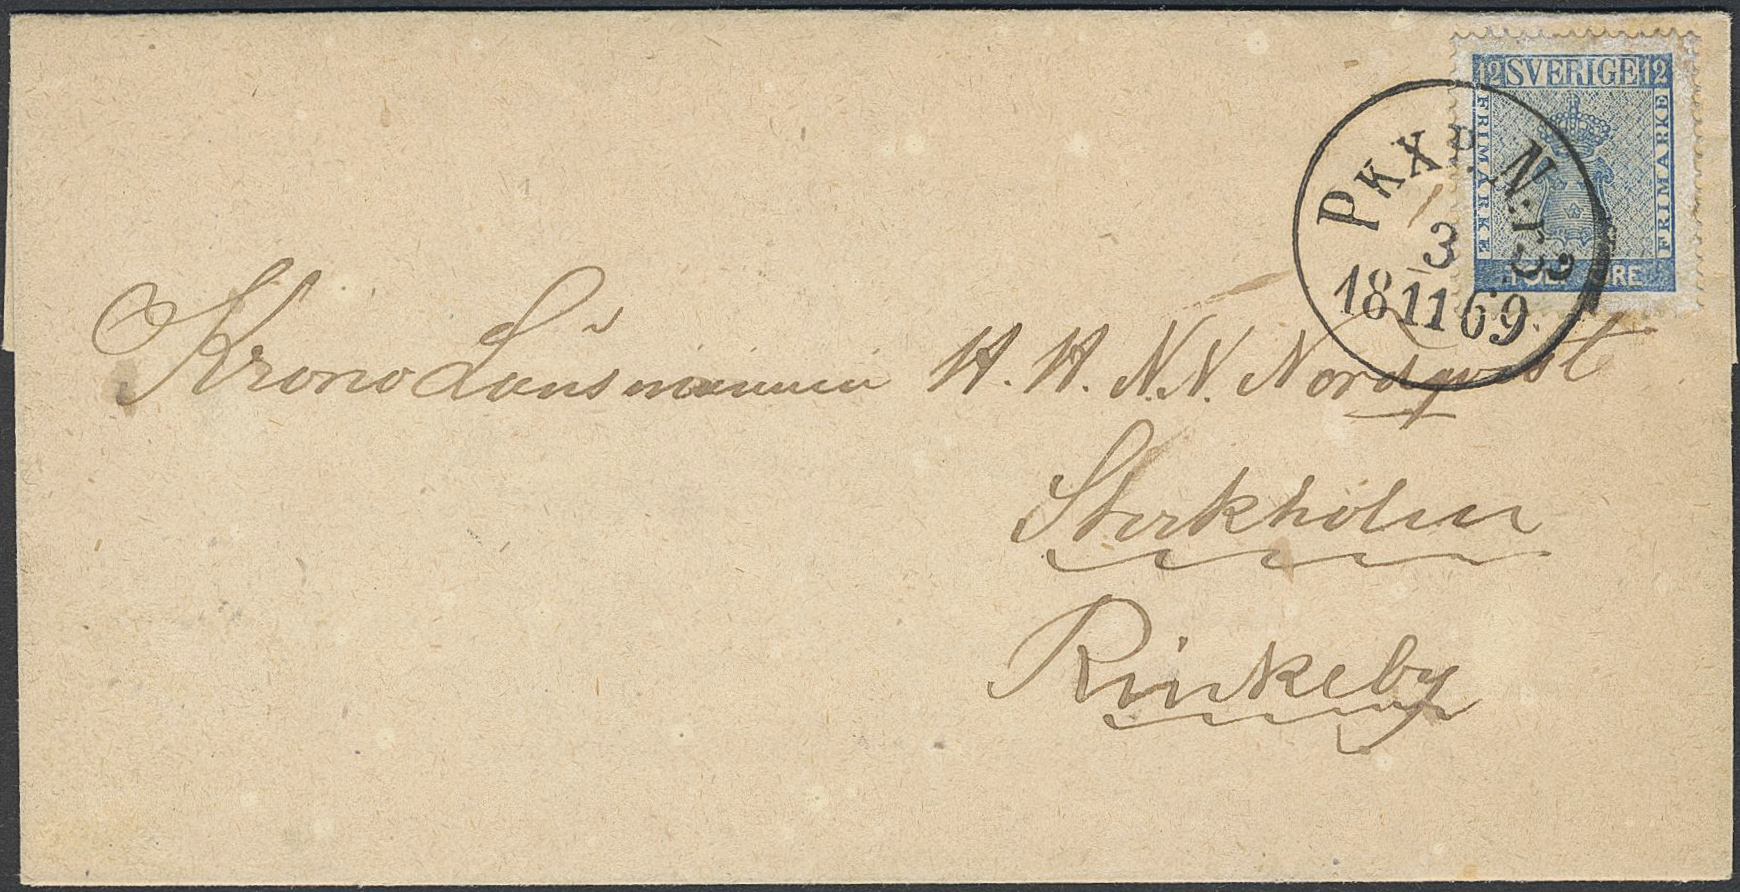 12 SVERIGE 12
FRIMÄRKE
FRIMÄRKE
TOLF ÖRE
PKXP. N:r 3
3
18 11 69
Krono Länsmannen H. H. N. N. Nordqvist
Stockholm
Rinkeby